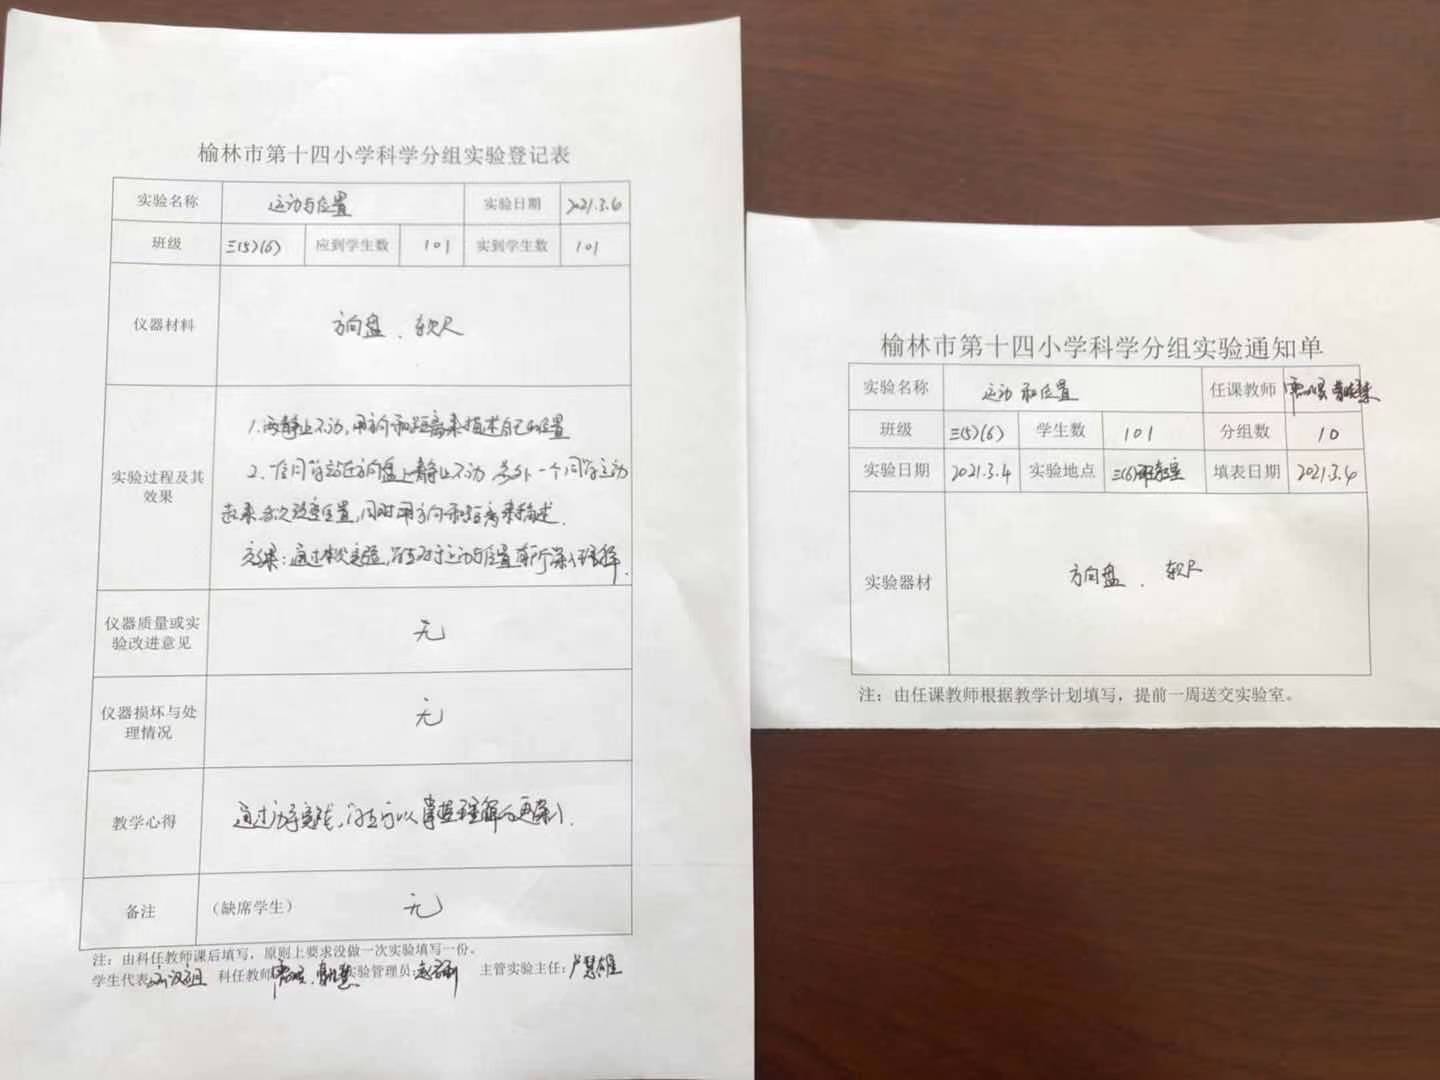 榆林市第十四小学科学分组实验登记表
实验名称 运动与位置 实验日期 2021.3.6
班级 三(5)(6) 应到学生数 101 实到学生数 101
仪器材料 方向盘、软尺
实验过程及其效果
1.两静止不动,用方向和距离来描述自己的位置
2.一位同学站在方向盘上静止不动 另外一个同学运动
起来多次改变位置,同时用方向和距离来描述.
效果:通过本次实验,学生对于运动与位置有所深入理解.
仪器质量或实验改进意见 无
仪器损坏与处理情况 无
教学心得 通过动手实践,学生可以掌握理解的更深入.
备注 (缺席学生) 无
注:由科任教师课后填写,原则上要求没做一次实验填写一份。
学生代表: 科任教师 实验管理员: 主管实验主任:
榆林市第十四小学科学分组实验通知单
实验名称 运动和位置 任课教师
班级 三(5)(6) 学生数 101 分组数 10
实验日期 2021.3.4 实验地点 三(6)教室 填表日期 2021.3.4
实验器材 方向盘、软尺
注:由任课教师根据教学计划填写,提前一周送交实验室。